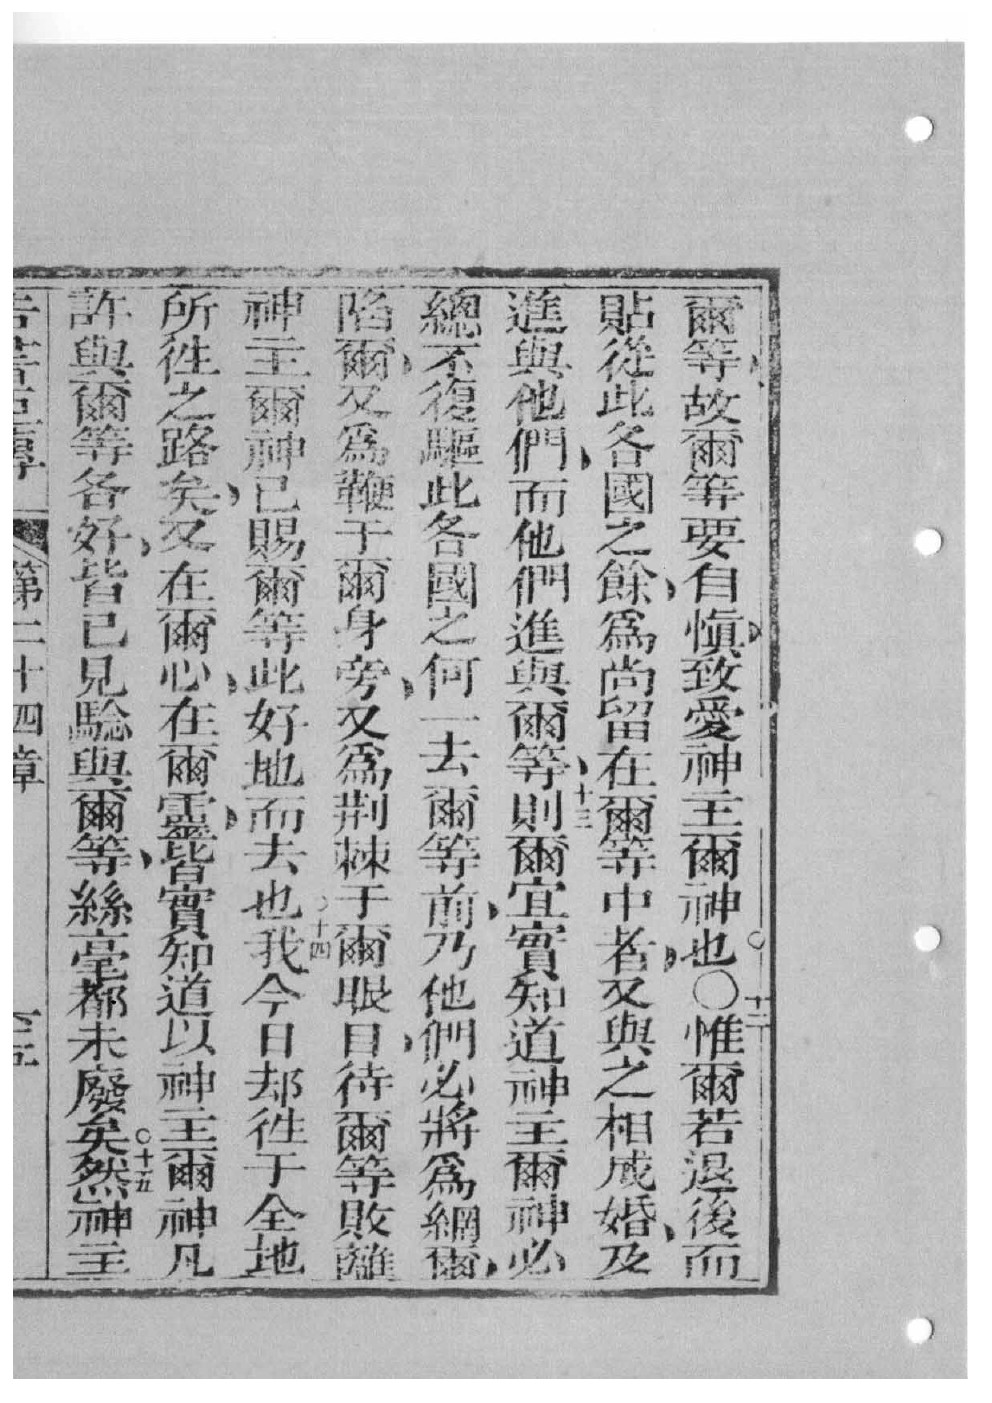 爾等、故爾等要自愼、致愛神主爾神也。〇十二惟爾若退後而
貼從此各國之餘、爲尚留在爾等中者、又與之相成婚、及
進與他們、而他們進與爾等、十三則爾宜實知道神主爾神必
總不復驅此各國之何一去爾等前、乃他們必將爲網爾、
陷爾、又爲鞭于爾身旁、又爲荆棘于爾眼目、待爾等敗離
神主爾神已賜爾等此好地而去也。十四我今日却徃于全地
所徃之路矣、又在爾心、在爾靈、皆實知道以神主爾神凡
許與爾等各好、皆已見騐與爾等、絲毫都未廢矣。十五然神主
第二十四章